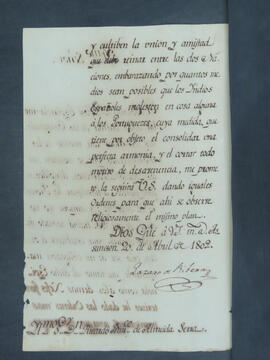 y cultiben la union y amistad
que debe reinar entre las dos Na
ciones, embarazando por quantos me
dios sean posibles que los Indios
Españoles molesten en cosa alguna
à los Portugueses, cuya medida, que
tiene por objeto el consolidar una
perfecta armonia, y el cortar todo
motivo de desavenencia, me prome
to, la seguirà V.S. dando iguales
ordenes para que ahi se observe
religiosamente el mismo plan.
Dios Gue à V.S. m. a.
20 de Abril de 1802.
Lazaro de Ribera
de Almeida Serra